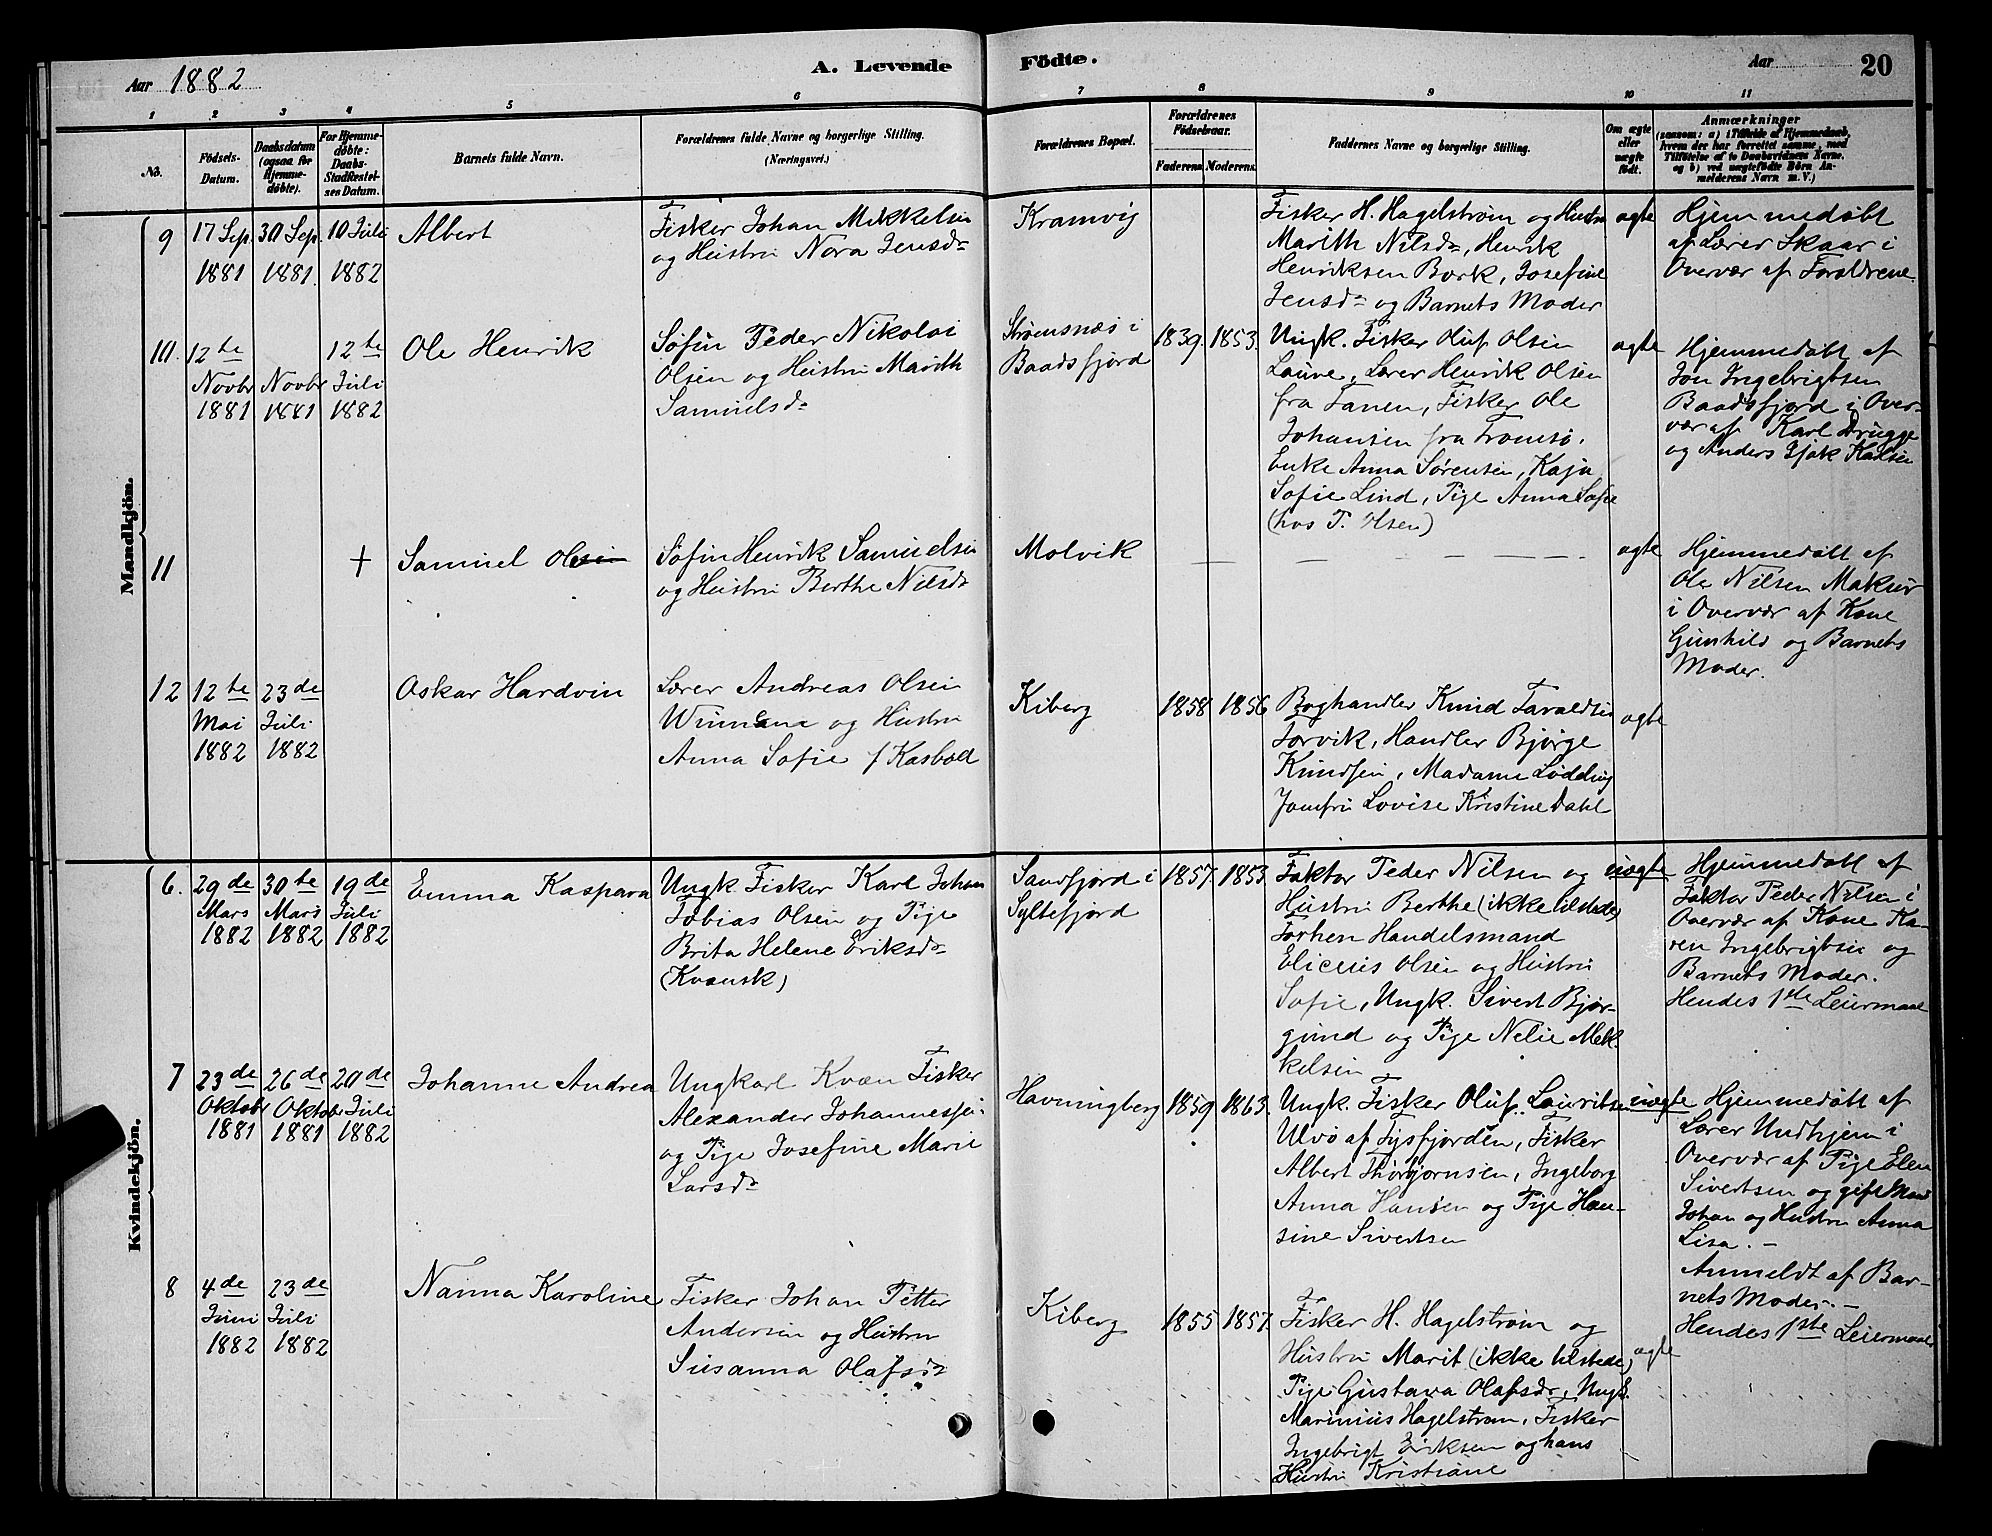 Aar 1882
A. Levende
Födte.
Aar
20
1 2 3 4 5 6 7 8 9 10 11
No.
Födsels-
Datum.
Daabsdatum
(ogsaa for
Hjemme-
döbte).
For Hjemme-
döbte:
Daabs-
Stadfæstel-
ses Datum.
Barnets fulde Navn.
Forældrenes fulde Navne og borgerlige Stilling.
(Næringsvei.)
Forældrenes Bopæl.
Forældrenes
Födselsaar.
Faderens. Moderens.
Faddernes Navne og borgerlige Stilling.
Om ægte
eller
uægte
födt.
Anmærkninger
(saasom: a) i Tilfælde af Hjemmedaab,
hvem der har forrettet samme, med
Tilföielse af to Daabsvidners Navne,
og b) ved uægtefödte Börn An-
melderens Navn m. V.)
Mandkjön.
9
17 Sep.
1881
30 Sep.
1881.
10 Juli
1882
Albert
Fisker Johan Mikkelsen
og Hustru Nora Jensdr
Kramvig
Fisker H. Hagelstrøm og Hustru
Marith Nilsdr, Henrik
Henriksen Bork, Josefine
Jensdr og Barnets Moder
ægte
Hjemmedøbt
af Lærer Skaar i
Overvær af Forældrene.
10.
12te
Novbr
1881
Novbr
1881
12te
Juli
1882
Ole Henrik
Søfin Peder Nikolai
Olsen og Hustru Marith
Samuelsdr
Strømsnæs i
Baadsfjord
1839. 1853.
Ungk. Fisker Oluf Olsen
Laura, Lærer Henrik Olsen
fra Tanen, Fisker Ole
Johansen fra Tromsø.
Enke Anna Sørensen, Kaja
Sofie Lind, Pige Anna Sofie
(hos P. Olsen)
ægte
Hjemmedøbt af
Jon Ingebrigtsen
Baadsfjord i Over-
vær af Karl Drugge
og Anders
11
+
Samuel Olsen
Søfin Henrik Samuelsen
og Hustru Berthe Nilsdr
Molvik
— — — — —
ægte
Hjemmedøbt af
Ole Nilsen
i Overvær af Kone
Gunhild og Barnets
Moder.
12
12te
Mai
1882
23de
Juli
1882
Oskar Hardvin
Lærer Andreas Olsen
og Hustru
Anna Sofie f Kasbøl
Kiberg
1858 1856
Boghandler Knud Taraldsen
Torvik, Handler Bjørge
Knudsen, Madame Lødding
Jomfru Lovise Kristine Dahl
ægte
Kvindekjön.
6.
29de
Mars
1882
30te
Mars
1882
19de
Juli
1882
Emma Kaspara
Ungk Fisker Karl Johan
Tobias Olsen og Pige
Brita Helene Eriksdr
(Kvænsk)
Sandfjord i
Syltefjord
1857. 1853.
Faktor Peder Nilsen og
Hustru Berthe (ikke tilstede)
Forhen Handelsmand
Eliceus Olsen og Hustru
Sofie, Ungk. Sivert Bjør-
gund og Pige Nelie Mek-
kelsen
uægte
Hjemmedøbt af
Faktor Peder Nilsen i
Overvær af Kone Ka-
ren Ingebrigtsen og
Barnets Moder.
Hendes 1ste Leiermaal
7
23de
Oktobr
1881
26de
Oktobr
1881
20de
Juli
1882
Johanne Andrea
Ungkarl Kvæn Fisker
Alexander Johannessen
og Pige Josefine Marie
Larsdr
Havningberg
1859. 1863.
Ungk. Fisker Oluf Lauritsen
Ulvø af Tysfjorden, Fisker
Albert Thorbjørnsen, Ingeborg
Anna Hansen og Pige Han-
sine Sivertsen
uægte
Hjemmedøbt af
Lærer Undhjem i
Overvær af Pige Elen
Sivertsen og gift Mand
Johan og Hustru Anna
Lisa. —
Anmeldt af Bar-
nets Moder. —
Hendes 1ste Leiermaal
8
4de
Juni
1882
23de
Juli
1882
Nanna Karoline
Fisker Johan Petter
Andersen og Hustru
Susanna Olafsdr
Kiberg
1855 1857.
Fisker H. Hagelstrøm og
Hustru Marit (ikke tilstede)
Pige Gustava Olafsdr, Ungk.
Marinius Hagelstrøm, Fisker
Ingebrigt Eriksen og hans
Hustru Kristiane
ægte